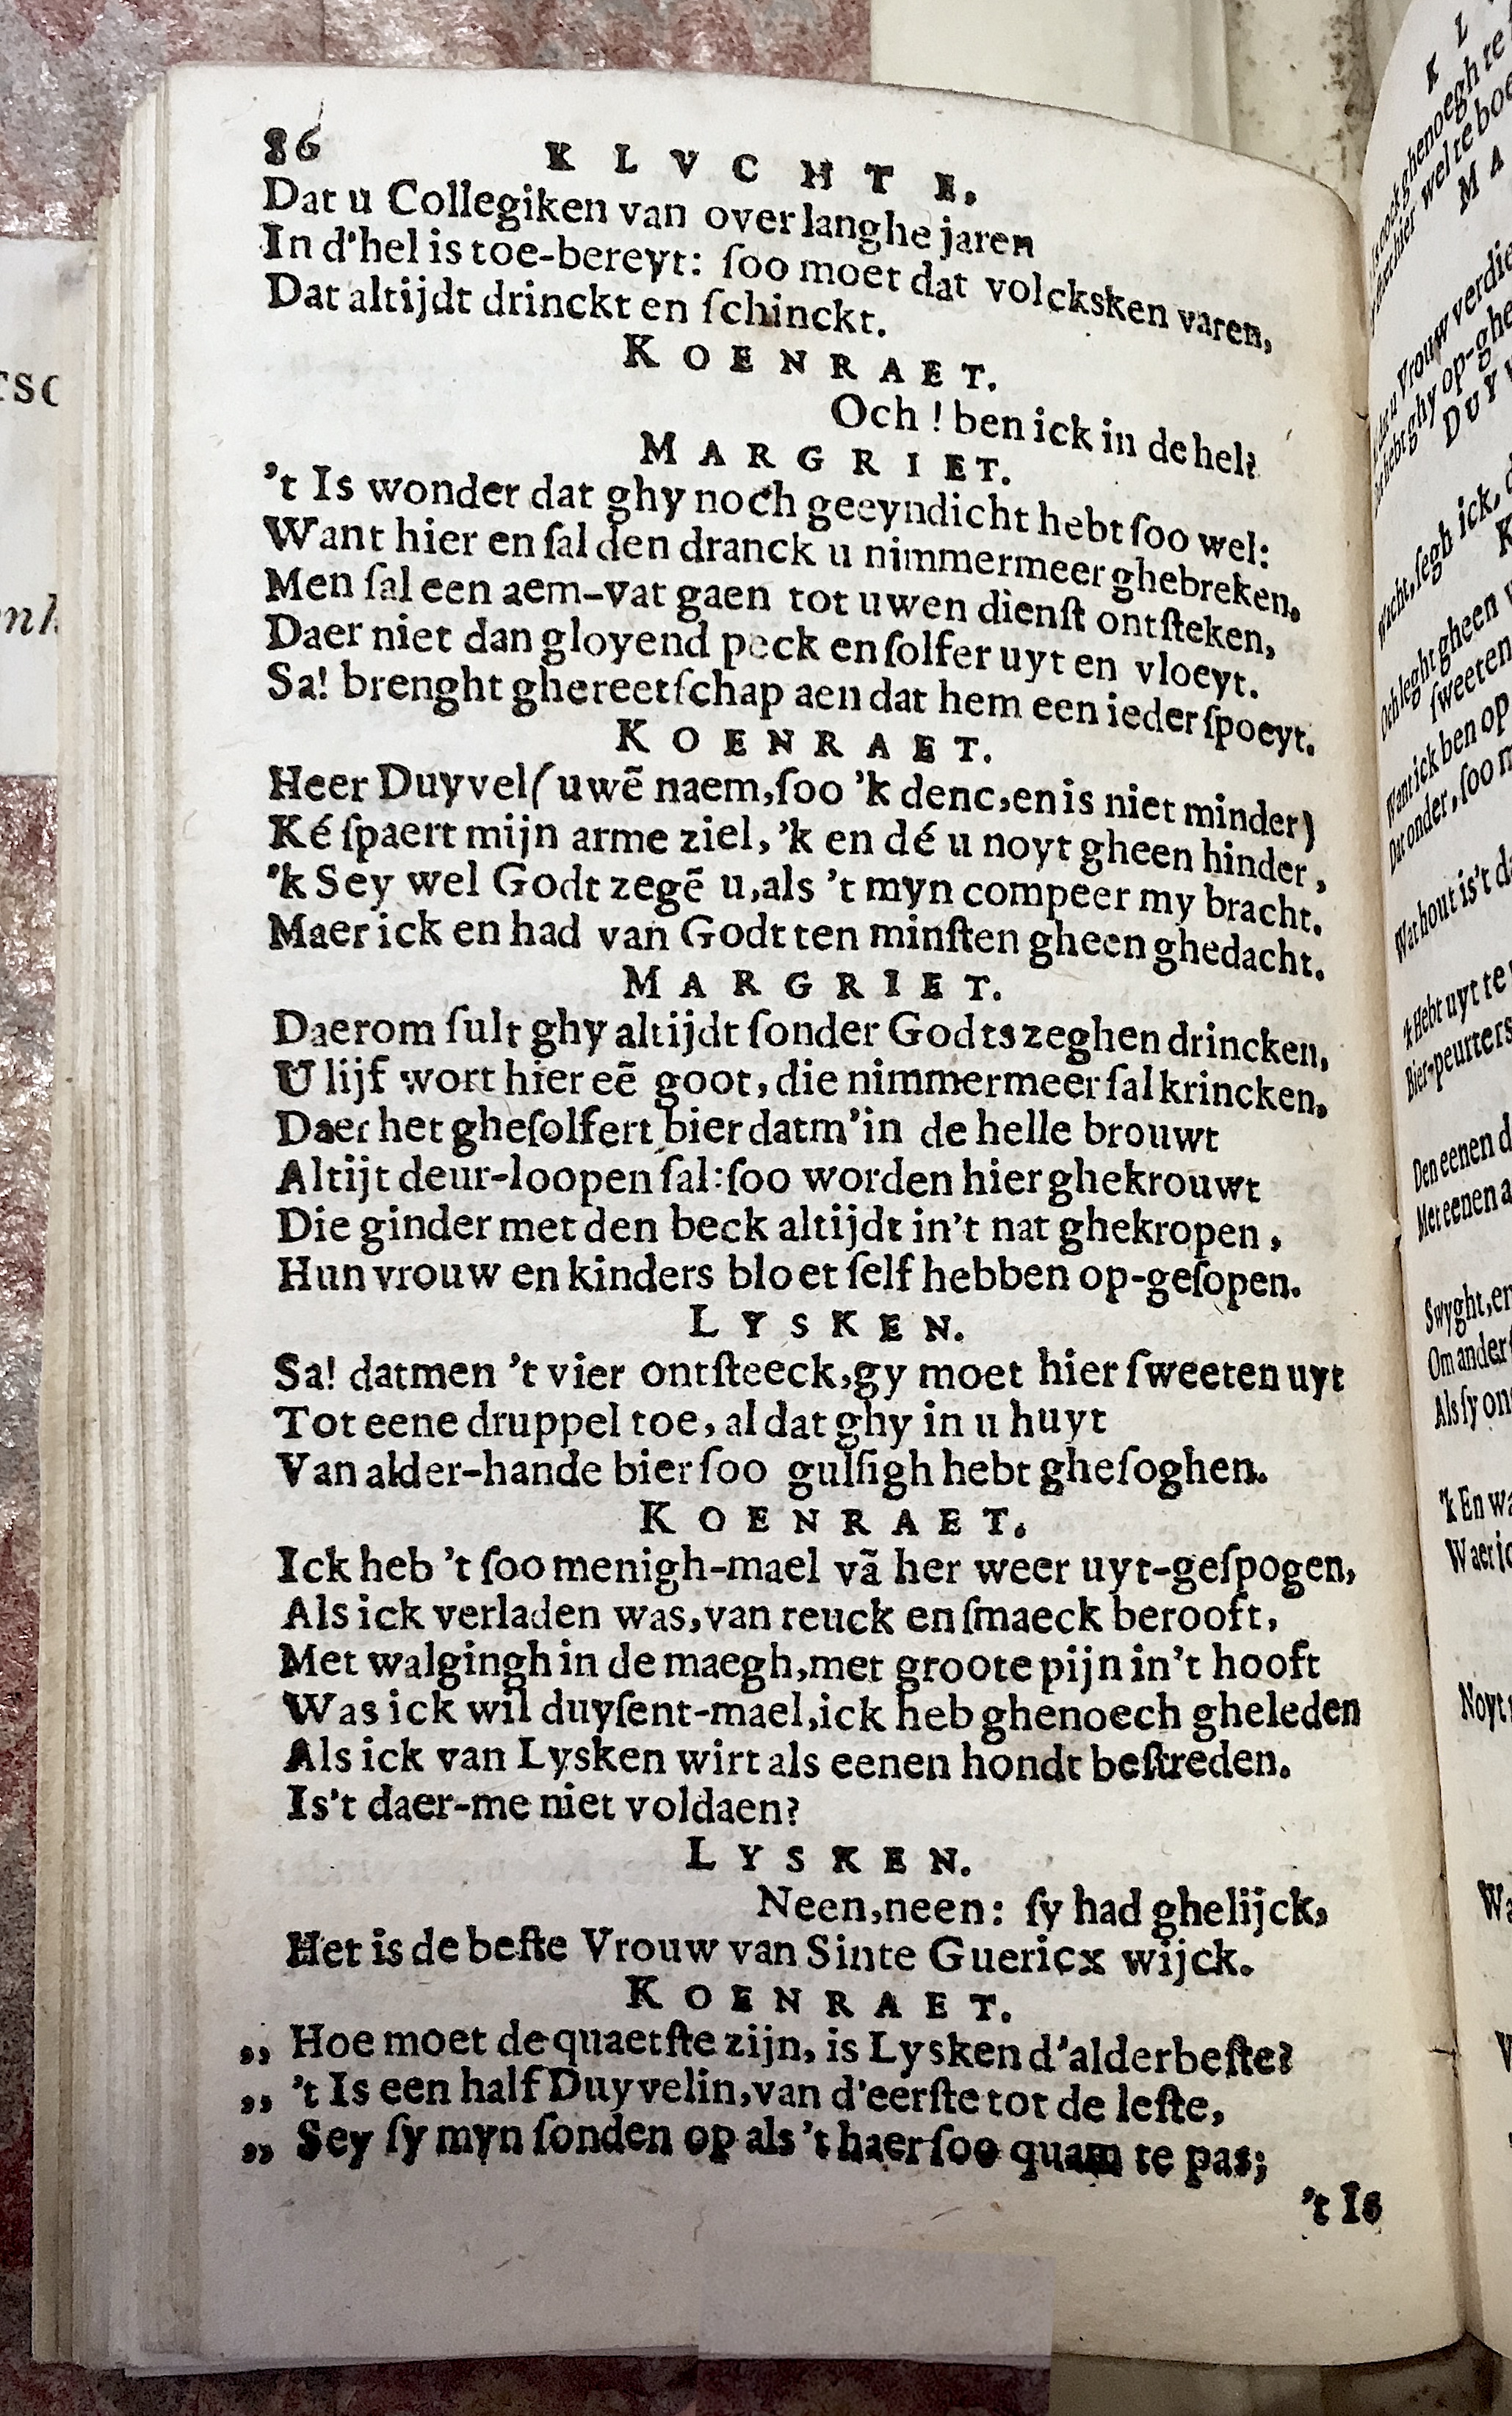 86
KLVCHTE.
Dat u Collegiken van over langhe jaren
In d'hel is toe-bereyt: ſoo moet dat volcksken varen,
Dat altijdt drinckt en ſchinckt.
KOENRAET.
Och ! ben ick in de hel?
MARGRIET.
't Is wonder dat ghy noch geeyndicht hebt ſoo wel:
Want hier en ſal den dranck u nimmermeer ghebreken,
Men ſal een aem-vat gaen tot uwen dienſt ontſteken,
Daer niet dan gloyend peck en ſolfer uyt en vloeyt.
Sa! brenght ghereetſchap aen dat hem een ieder ſpoeyt.
KOENRAET.
Heer Duyvel (uwẽ naem, ſoo 'k denc, en is niet minder)
Ké ſpaert mijn arme ziel, 'k en dé u noyt gheen hinder,
'k Sey wel Godt zegẽ u, als 't myn compeer my bracht.
Maer ick en had van Godt ten minſten gheen ghedacht.
MARGRIET.
Daerom ſult ghy altijdt ſonder Godts zeghen drincken,
U lijf wort hier eẽ goot, die nimmermeer ſal krincken,
Daer het gheſolfert bier datm'in de helle brouwt
Altijt deur-loopen ſal: ſoo worden hier ghekrouwt
Die ginder met den beck altijdt in't nat ghekropen,
Hun vrouw en kinders bloet ſelf hebben op-geſopen.
LYSKEN.
Sa! datmen 't vier ontſteeck, gy moet hier ſweeten uyt
Tot eene druppel toe, al dat ghy in u huyt
Van alder-hande bier ſoo gulſigh hebt gheſoghen.
KOENRAET.
Ick heb 't ſoo menigh-mael vã her weer uyt-geſpogen,
Als ick verladen was, van reuck en ſmaeck berooft,
Met walgingh in de maegh, met groote pijn in't hooft
Was ick wil duyſent-mael, ick heb ghenoech gheleden
Als ick van Lysken wirt als eenen hondt beſtreden.
Is't daer-me niet voldaen?
LYSKEN.
Neen, neen: ſy had ghelijck,
Het is de beſte Vrouw van Sinte Guericx wijck.
KOENRAET.
,, Hoe moet de quaetſte zijn, is Lysken d'alderbeſte?
,, 't Is een half Duyvelin, van d'eerſte tot de leſte,
,, Sey ſy myn ſonden op als 't haer ſoo quam te pas;
't Is